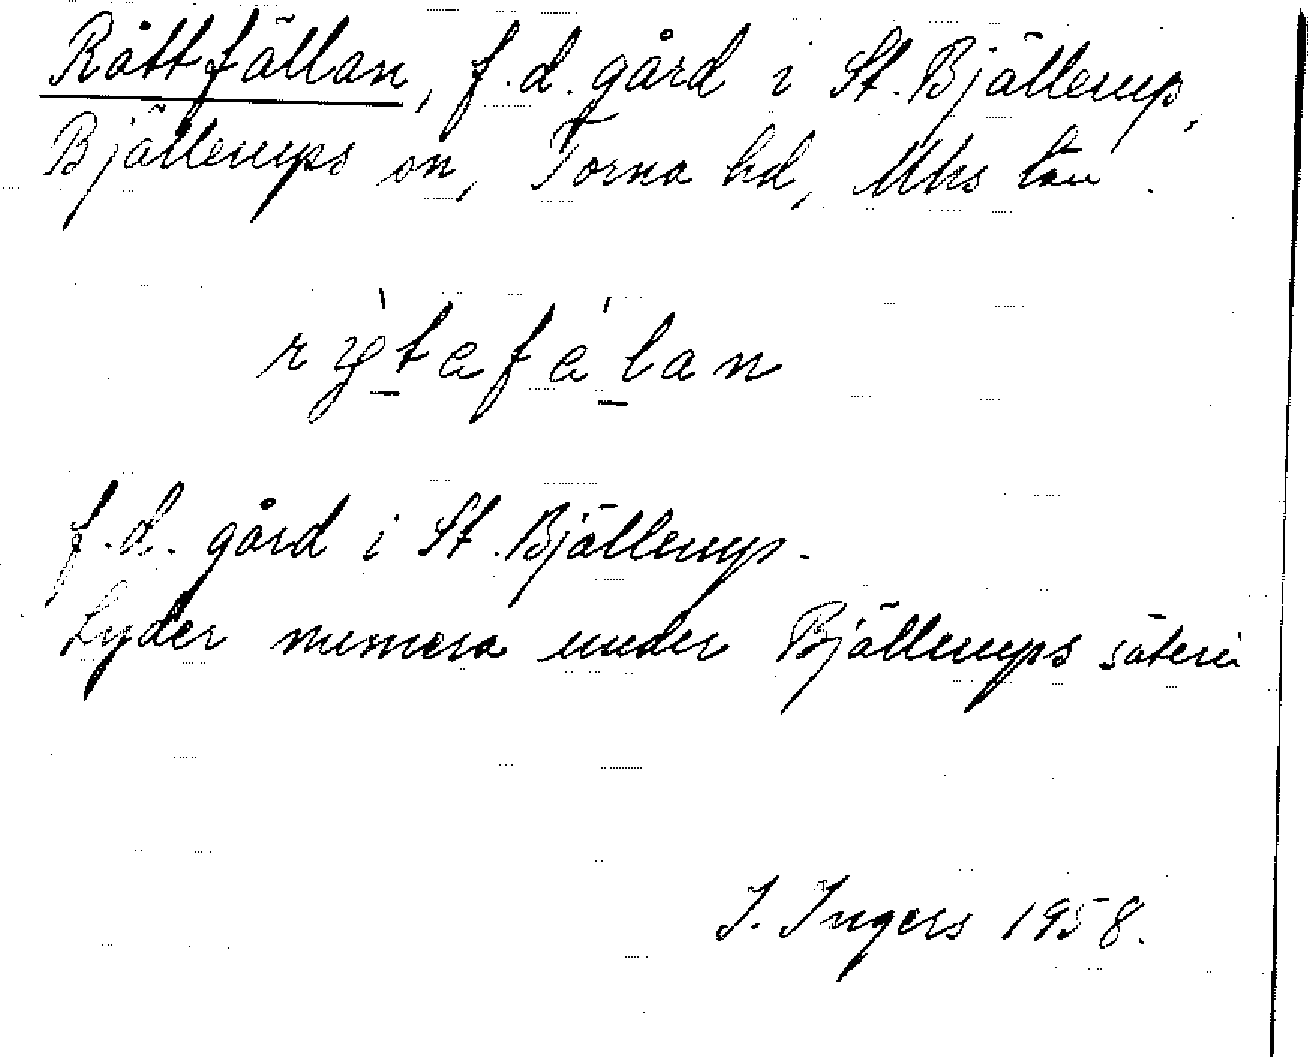 Råttfällan, f.d. gård i St. Bjällerup,
Bjällerups sn, Torna hd, Mhs län.
f.d. gård i St. Bjällerup.
Lyder numera under Bjällerups säteri
I. Ingers 1958.